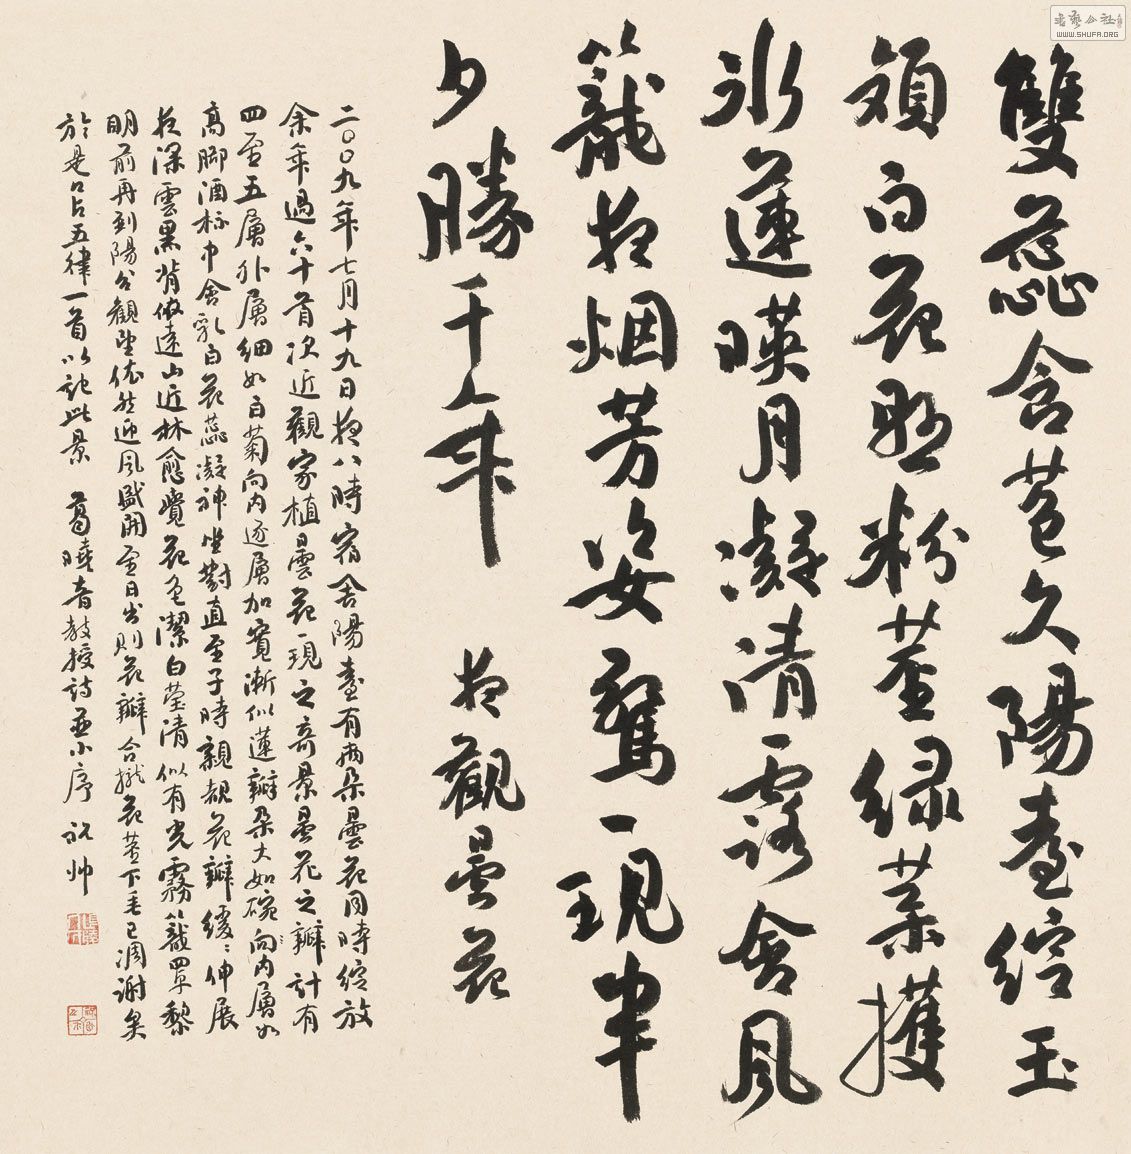 雙蕊含苞久陽臺綻玉
白花粉莖綠葉擭
冰蓮暎月凝清露含風
籠夜烟芳姿驚一現半
夕勝千年 夜觀曇花
二〇〇九年七月十九日夜八時宿舍陽臺有兩朵曇花同時綻放
余年過六十首次近觀家植曇花一現之奇景曇花之瓣計有
四至五層外層細如白菊向內逐層加寬漸似蓮瓣朵大如碗向內層如
高脚酒杯中含乳白花蕊凝神坐對直至子時親覩花瓣緩〻伸展
夜深雲黑背倚遠山近林愈覺花色潔白瑩清似有光霧籠罩黎
明前再到陽台觀望依然迎風盛開至日出則花瓣合攏花莖下垂已凋謝矣
於是口占五律一首以記此景 葛曉音教授詩並小序 祝帅
WWW.SHUFA.ORG